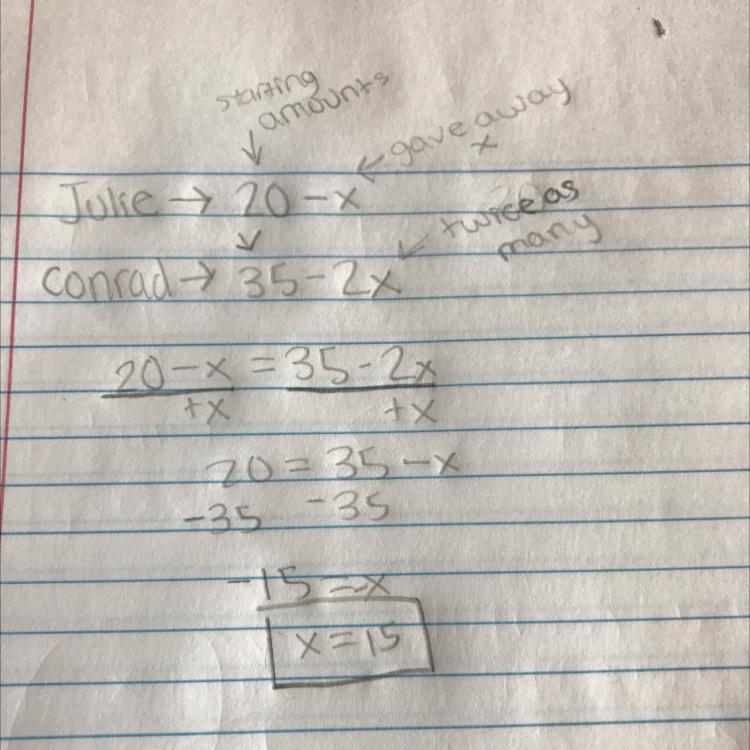 starting
amounts
gave away
x
Julie → 20 - x
twice as
many
Conrad → 35 - 2x
20 - x = 35 - 2x
+x +x
20 = 35 - x
-35 -35
-15 = -x
x = 15